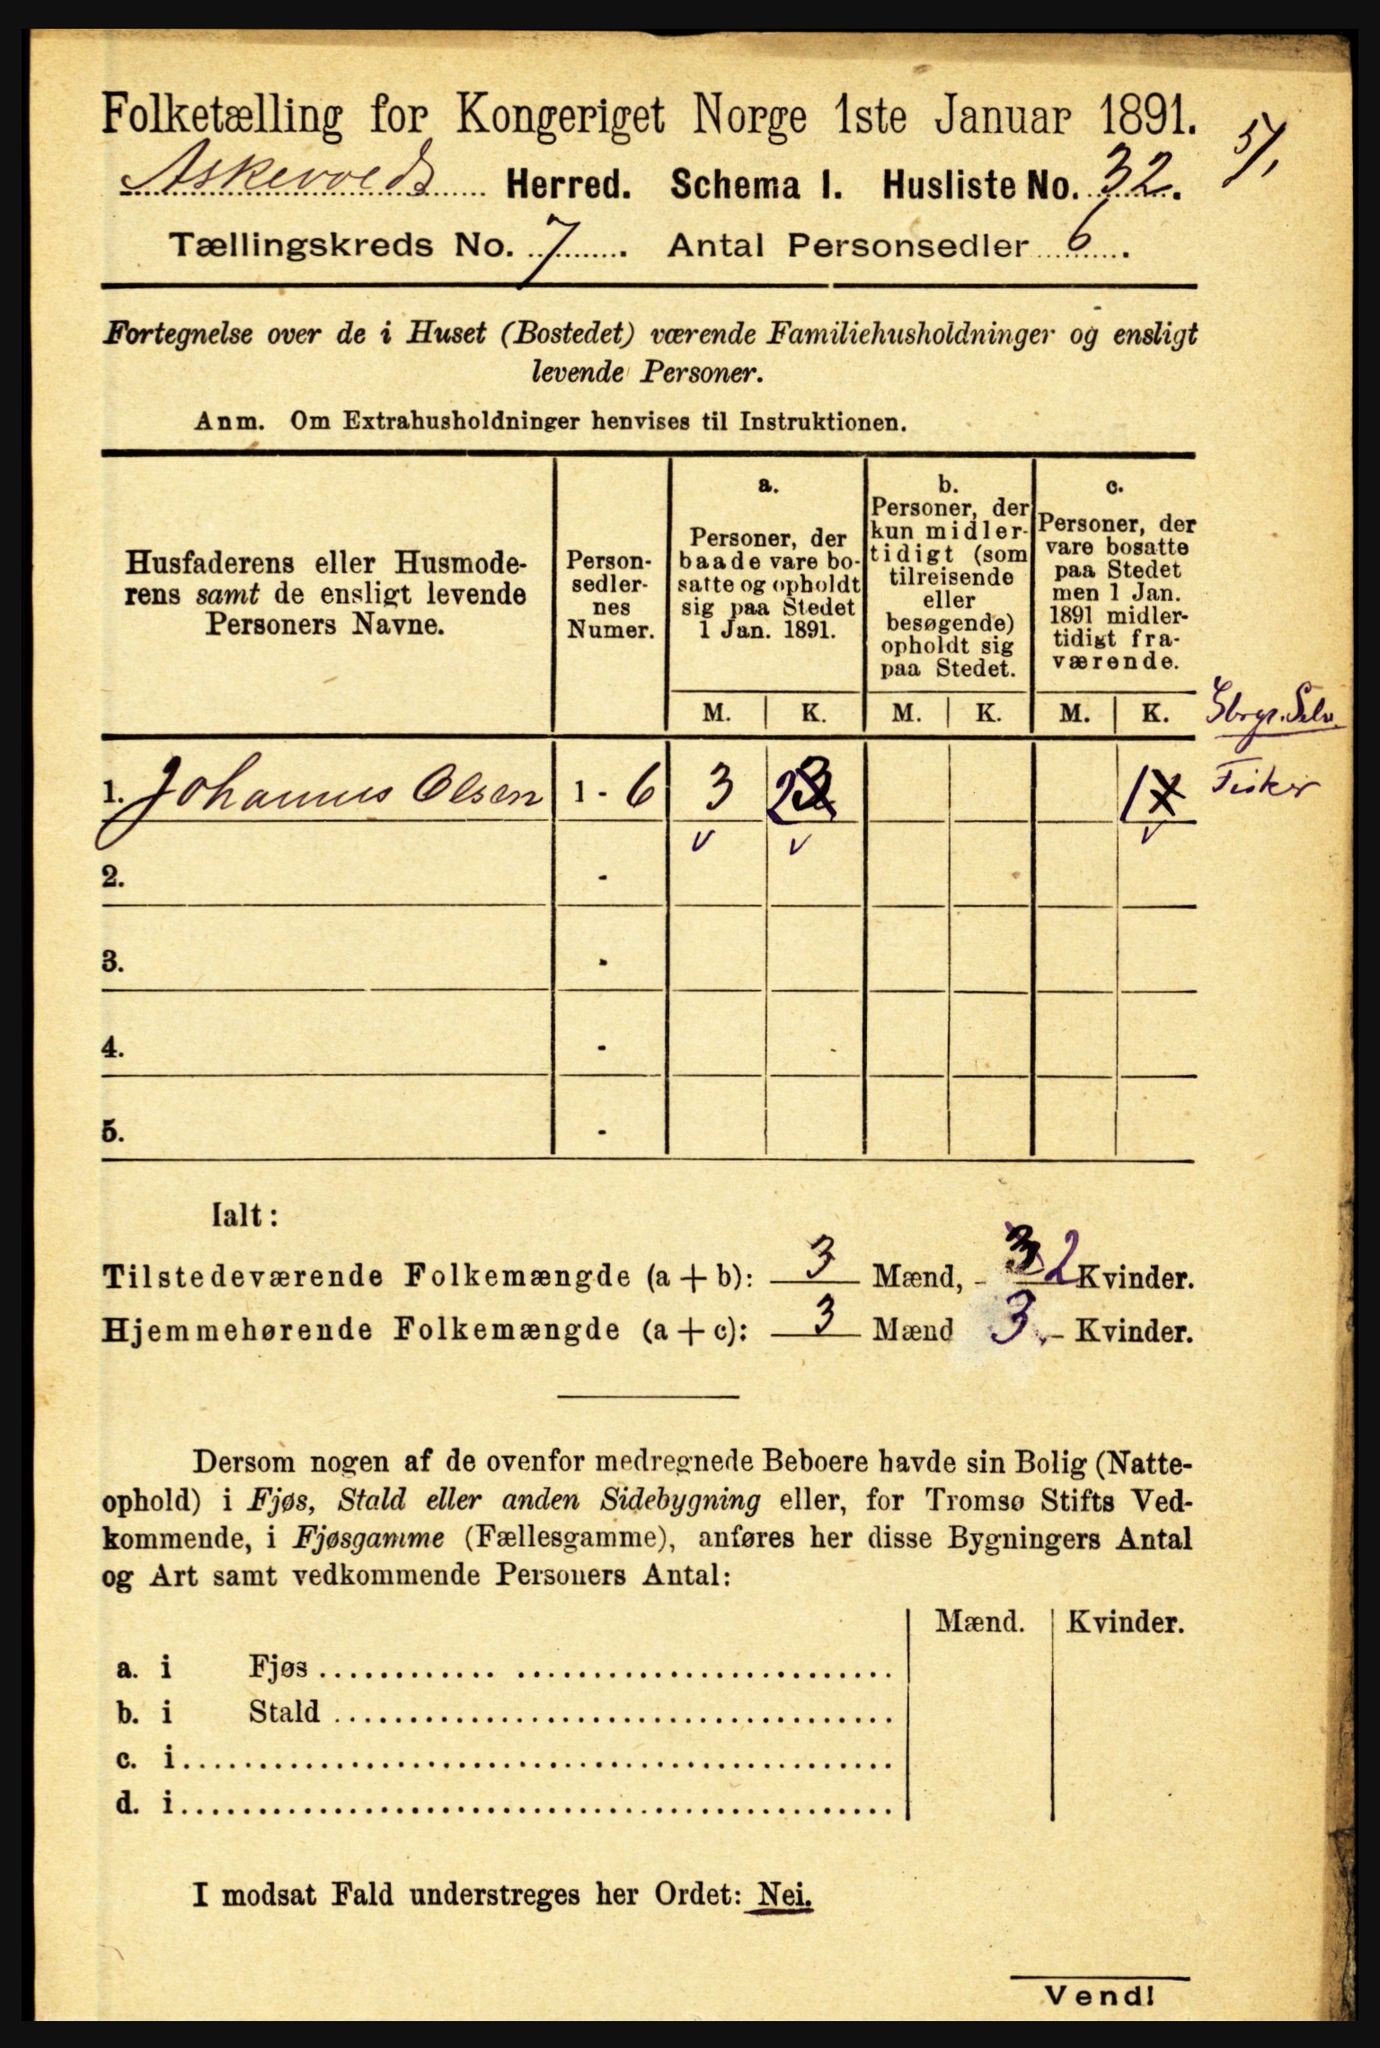 Folketælling for Kongeriget Norge 1ste Januar 1891.
5/1
Askevolds Herred. Schema 1. Husliste No. 32.
Tællingskreds No. 7. Antal Personsedler 6.
Fortegnelse over de i Huset (Bostedet) værende Familiehusholdninger og ensligt
levende Personer.
Anm. Om Extrahusholdninger henvises til Instruktionen.
Husfaderens eller Husmode-
rens samt de ensligt levende
Personers Navne.
Person-
sedler-
nes
Numer.
a.
Personer, der
baade vare bo-
satte og opholdt
sig paa Stedet
1 Jan. 1891.
b.
Personer, der
kun midler-
tidigt (som
tilreisende
eller
besøgende)
opholdt sig
paa Stedet.
c.
Personer, der
vare bosatte
paa Stedet
men 1 Jan.
1891 midler-
tidigt fra-
værende.
M. K. M. K. M. K.
1. Johannes Olsen 1 - 6 3 2 1 Fisker
v v v
2. -
3. -
4. -
5. -
Ialt:
Tilstedeværende Folkemængde (a + b): 3 Mænd, - 3 2 Kvinder.
Hjemmehørende Folkemængde (a + c): 3 Mænd 3 - Kvinder.
Dersom nogen af de ovenfor medregnede Beboere havde sin Bolig (Natte-
ophold) i Fjøs, Stald eller anden Sidebygning eller, for Tromsø Stifts Ved-
kommende, i Fjøsgamme (Fællesgamme), anføres her disse Bygningers Antal
og Art samt vedkommende Personers Antal:
Mænd. Kvinder.
a. i Fjøs
b. i Stald
c. i
d. i
I modsat Fald understreges her Ordet: Nei.
Vend!